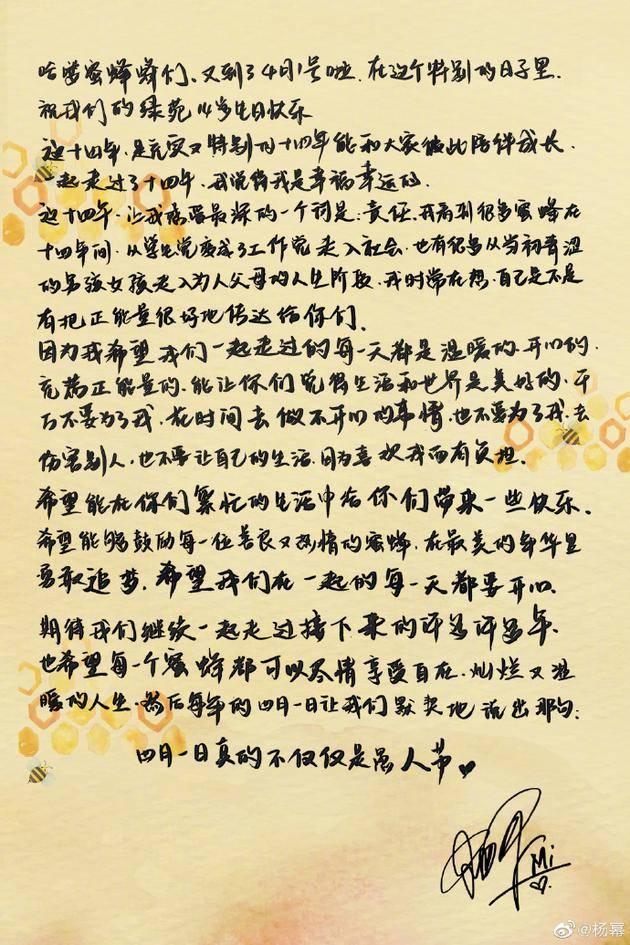 哈喽蜜蜂蜂们、又到了4月1号啦.在这个特别的日子里.
祝我们的绿苑14岁生日快乐
这十四年.是充实又特别的十四年能和大家彼此陪伴成长.
一起走过了十四年.我觉得我是幸福幸运的.
这十四年.让我感受最深的一个词是:责任.我看到很多蜜蜂在
十四年间.从学生党变成了工作党走入社会.也有很多从当初青涩
的男孩女孩走入为人父母的人生阶段.我时常在想.自己是不是
有把正能量很好地传达给你们.
因为我希望我们一起走过的每一天都是温暖的.开心的.
充满正能量的.能让你们觉得生活和世界是美好的.千
万不要为了我.花时间去做不开心的事情.也不要为了我.去
伤害别人.也不要让自己的生活.因为喜欢我而有负担.
希望能在你们繁忙的生活中给你们带来一些快乐.
希望能够鼓励每一位善良又热情的蜜蜂.在最美的年华里
勇敢追梦.希望我们在一起的每一天都要开心.
期待我们继续一起走过接下来的许多许多年.
也希望每一个蜜蜂都可以尽情享受自在.灿烂又温
暖的人生.然后每年的四月一日让我们默契地说出那句:
四月一日真的不仅仅是愚人节♥
杨幂
Mi
♡
@杨幂